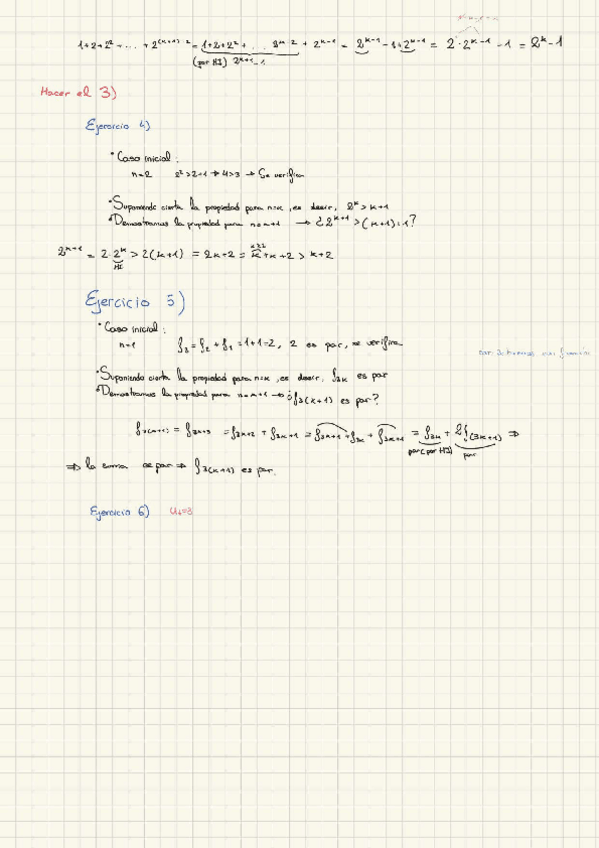 1+2+2²+...+2^(k+1)-2 = 1+2+2²+...2^k-2 + 2^k-1 = 2^k-1 - 1 + 2^k-1 = 2·2^k-1 - 1 = 2^k - 1
(por HI) 2^k-1 - 1
Hacer el 3)
Ejercicio 4)
• Caso inicial:
n=2 2²>2+1 → 4>3 → Se verifica
• Suponiendo cierta la propiedad para n=k, es decir, 2^k > k+1
• Demostramos la propiedad para n=k+1 → ¿2^k+1 > (k+1)+1?
2^k+1 = 2·2^k > 2(k+1) = 2k+2 = k+k+2 > k+2
HI
Ejercicio 5)
• Caso inicial:
n=1 f₃ = f₂ + f₁ = 1+1 = 2, 2 es par, se verifica
• Suponiendo cierta la propiedad para n=k, es decir, f3k es par
• Demostramos la propiedad para n=k+1 → ¿f3(k+1) es par?
f3(k+1) = f3k+3 = f3k+2 + f3k+1 = f3k+1 + f3k + f3k+1 = f3k + 2f(3k+1) ⇒
par (por HI) par
⇒ la suma es par ⇒ f3(k+1) es par.
Ejercicio 6)